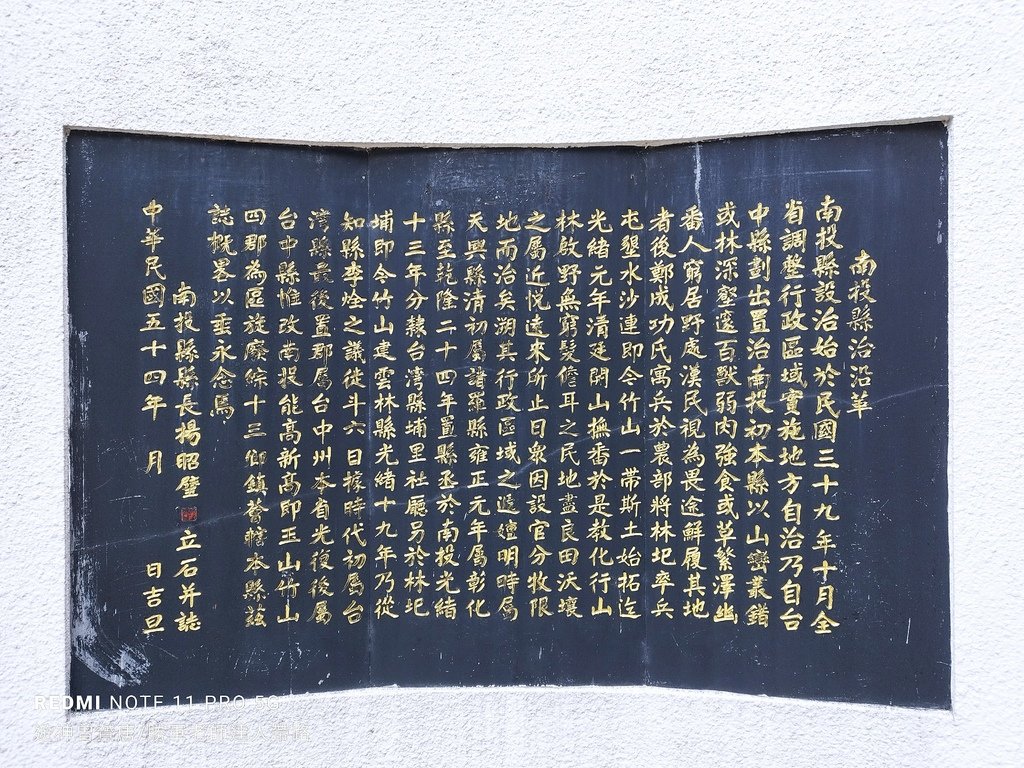 南投縣治沿革
南投縣設治始於民國三十九年十月全
省調整行政區域實施地方自治乃自台
中縣劃出置治南投初本縣以山巒叢錯
或林深壑邃百獸弱肉強食或草繁澤幽
番人窮居野處漢民視為畏途鮮履其地
者後鄭成功氏寓兵於農部將林圯率兵
屯墾水沙連即今竹山一帶斯土始拓迄
光緒元年清廷開山撫番於是教化行山
林啟野無窮髮儋耳之民地盡良田沃壤
之屬近悅遠來所止日衆因設官分牧限
地而治矣溯其行政區域之遞嬗明時屬
天興縣清初屬諸羅縣雍正元年屬彰化
縣至乾隆二十四年置縣丞於南投光緒
十三年分隸台灣縣埔里社廳另於林圯
埔即今竹山建雲林縣光緒十九年乃從
知縣李烇之議徙斗六日據時代初屬台
灣縣最後置郡屬台中州本省光復後屬
台中縣惟改南投能高新高即玉山竹山
四郡為區旋廢綜十三鄉鎮薈轄本縣茲
誌概畧以垂永念焉
南投縣縣長楊昭璧 立石并誌
中華民國五十四年 月 日吉旦
REDMI NOTE 11 PRO 5G